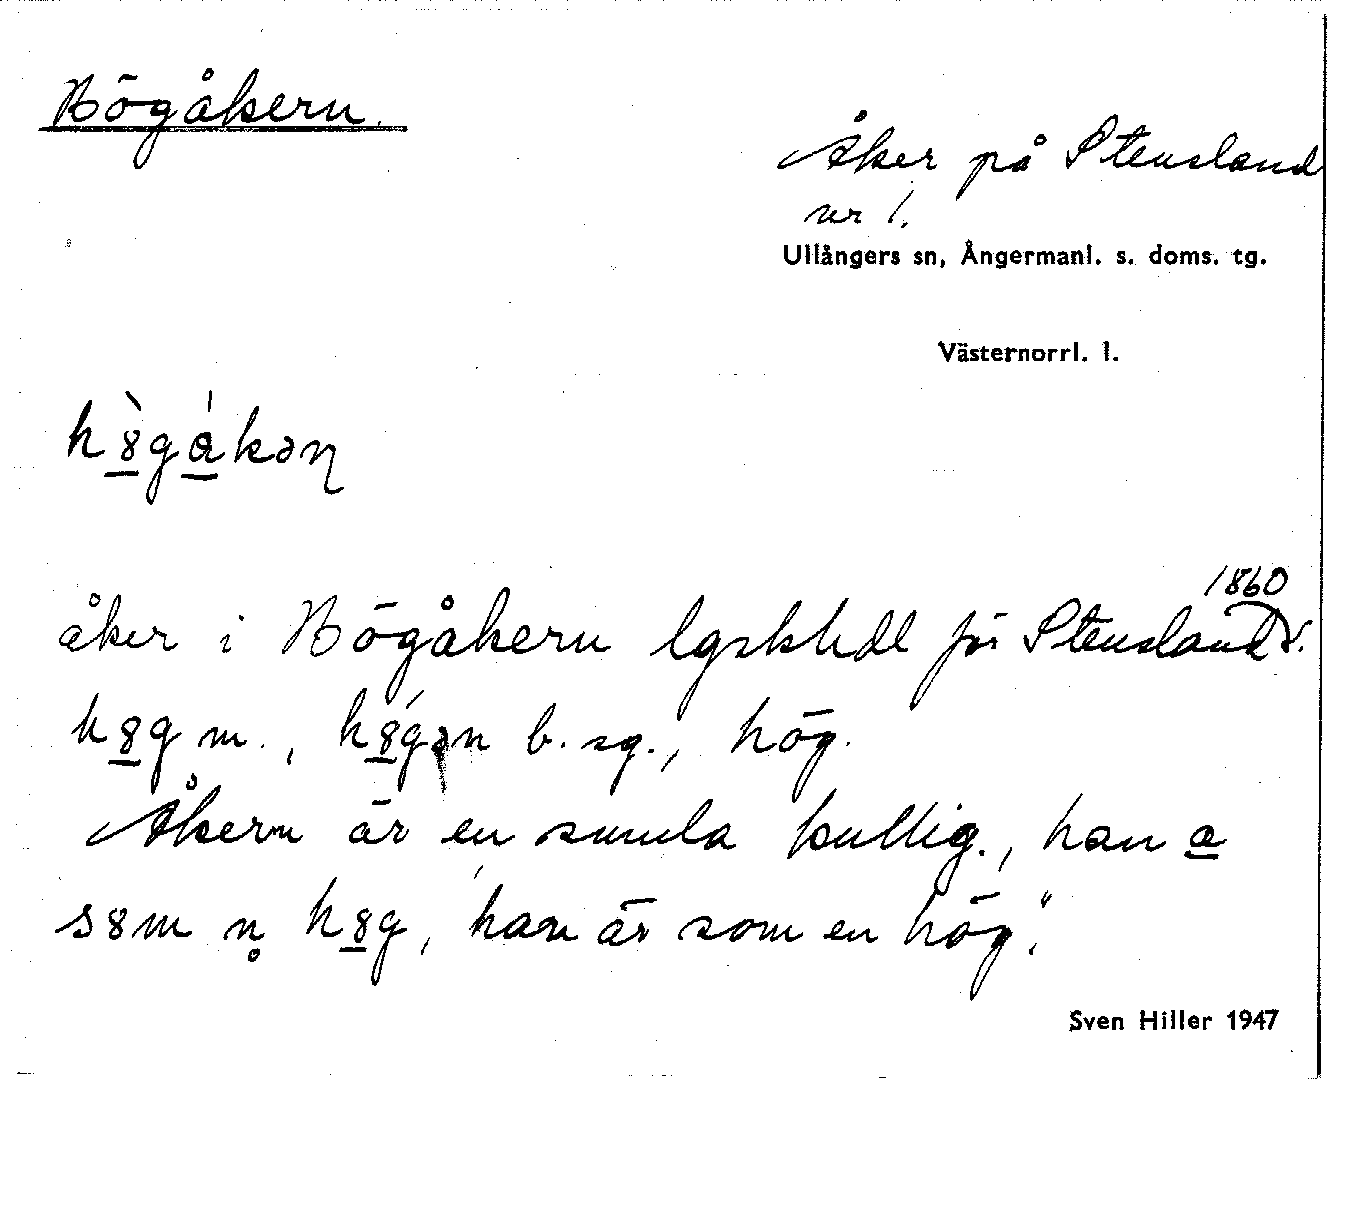 Högåkern.
Åker på Stensland
nr 1.
Ullångers sn, Ångermanl. s. doms. tg.
Västernorrl. l.
h8̲̀ga̲̍kəɳ
åker i Högåkern lgskhdl för Stensland 1860.
h8̲g m., h8̲́gən b. sg., hög.
Åkern är en smula kullig., han a̲
s8m n̥ h8̲g, "han är som en hög".
Sven Hiller 1947